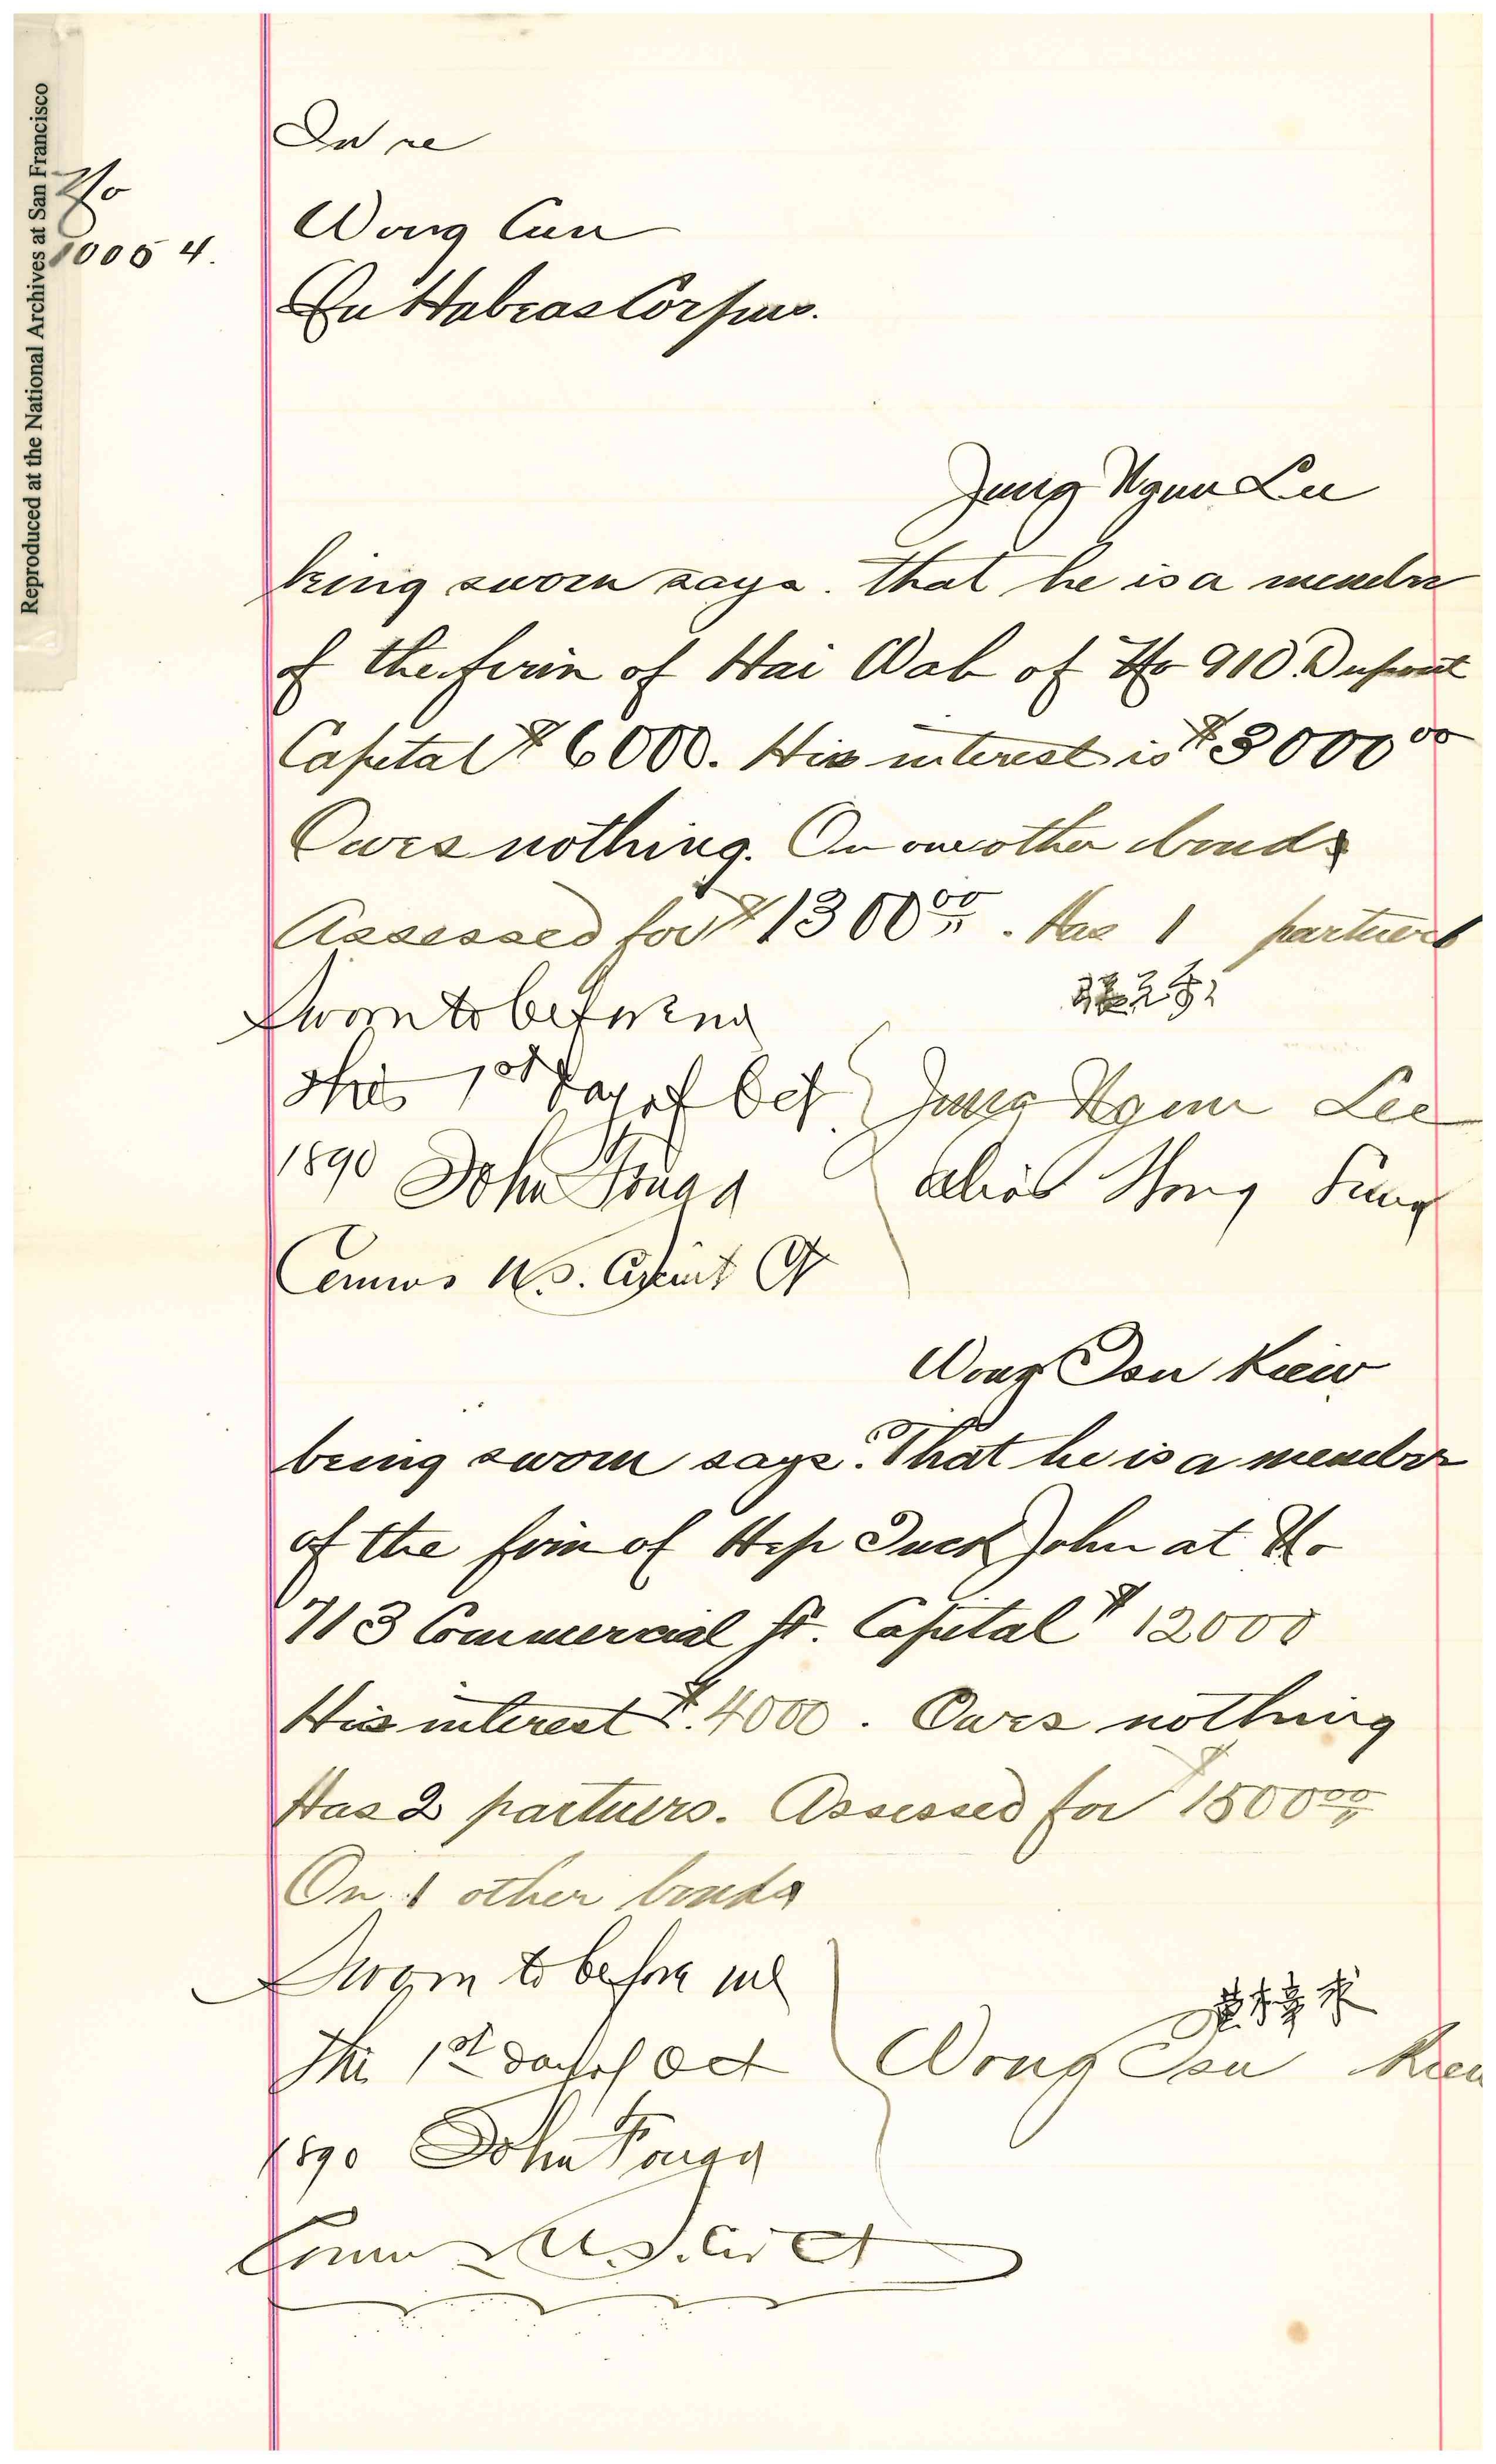 Reproduced at the National Archives at San Francisco
No
10054.
In re
Wong Can
On Habeas Corpus.
Jung Ngun Lee
being sworn says. that he is a member
of the firm of Hai Wah of No 910 Dupont
Capital $6000. His interest is $3000 00
Owes nothing. On one other bonds
Assessed for $1300 00. Has 1 partners
Sworn to before me
this 1st day of Oct
Jung Ngun Lee
1890 John Fouga
alias Hong Sung
Commr U.S. Circuit Ct
Wong Don Kiew
being sworn says. That he is a member
of the firm of Hep Duck John at No
713 Commercial St. Capital $12000
His interest $.4000. Owes nothing
Has 2 partners. Assessed for $1500 00
On 1 other bonds
Sworn to before me
This 1st day of Oct
Wong Don Kiew
1890 John Fouga
Commr U.S. Cir Ct